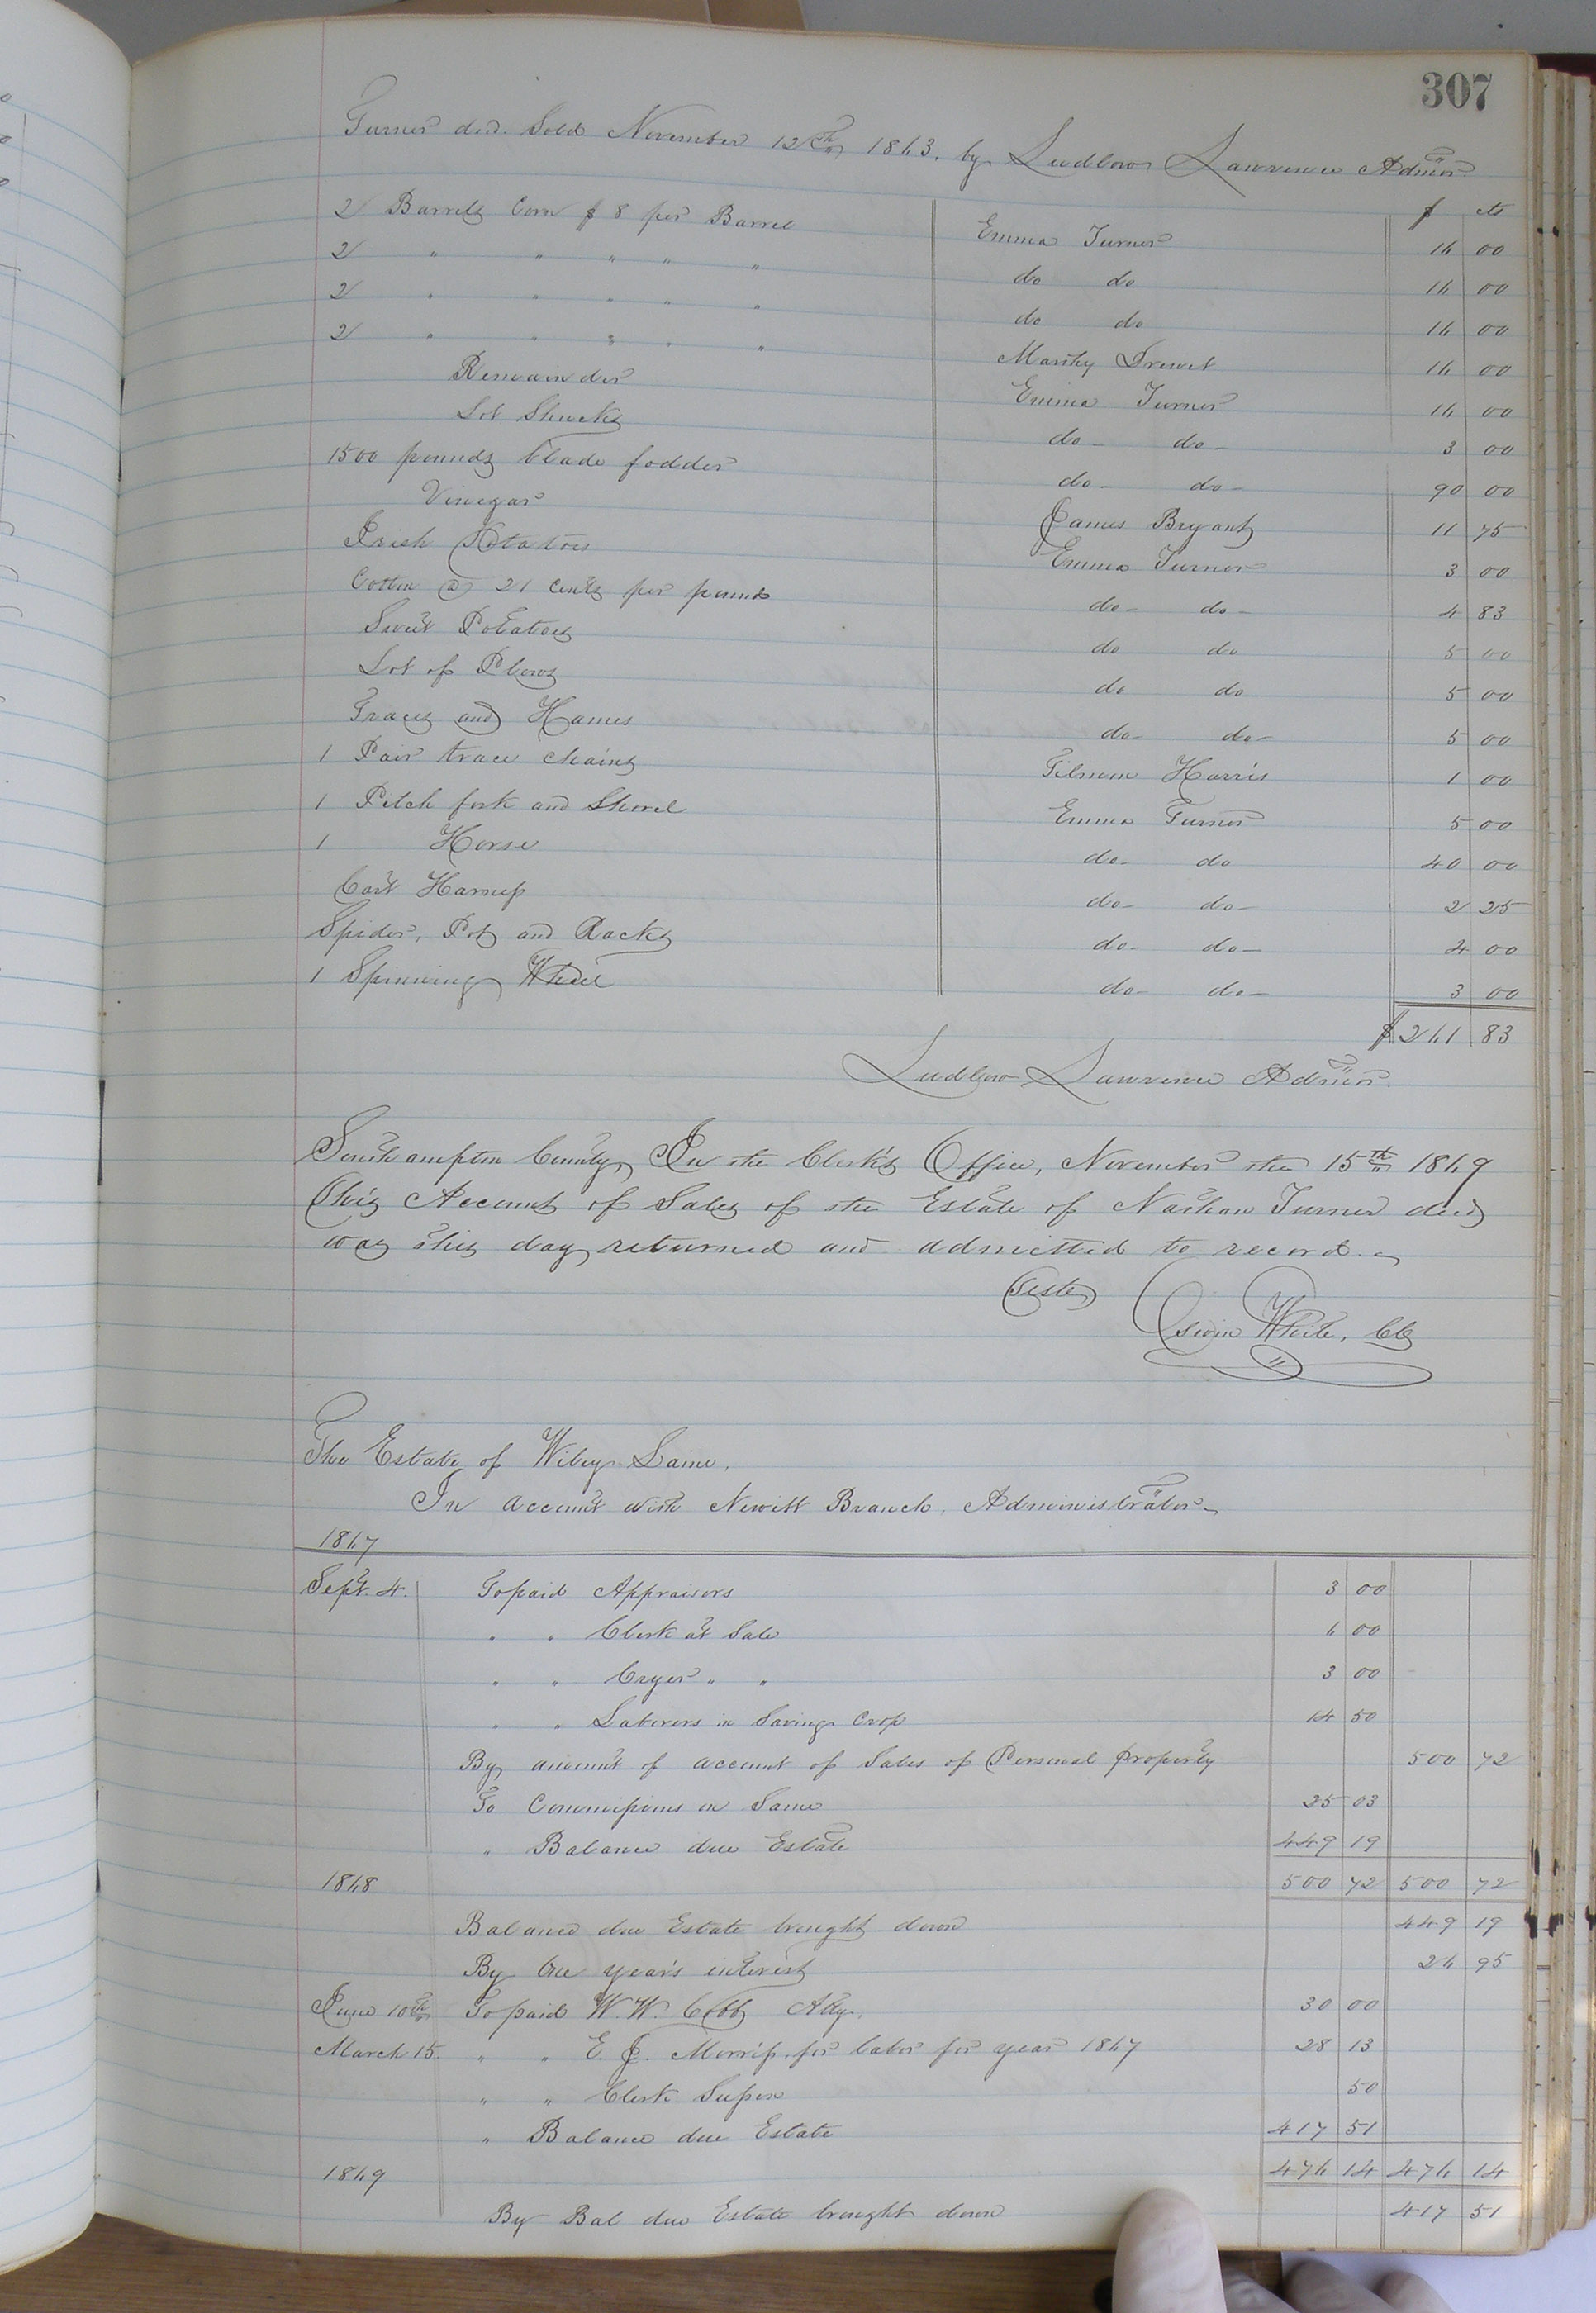 307
Turner decd. Sold November 12th 1863. by Ludlow Lawrence Admor
$ cts
2 Barrels Corn $ 8 per Barrel Emma Turner 16 00
2 " " " " " do do 16 00
2 " " " " " do do 16 00
2 " " " " " Manthy Drewet 16 00
Remainder Emma Turner 16 00
Lot Shucks do - do - 3 00
1500 pounds blade fodder do - do - 90 00
Vinegar James Bryant 11 75
Irish Potatoes Emma Turner 3 00
Cotton @ 21 cents per pound do - do - 4 83
Sweet Potatoes do do 5 00
Lot of Plows do do 5 00
Traces and Hames do - do - 5 00
1 Pair trace chains Tilmon Harris 1 00
1 Pitch fork and Shovel Emma Turner 5 00
1 Horse do - do 40 00
Cart Harness do - do - 2 25
Spider, Pot and Racks do - do - 4 00
1 Spinning Wheel do - do - 3 00
$ 261 83
Ludlow Lawrence Admor
Southampton County, In the Clerk's Office, November the 15th 1869
This Account of Sales of the Estate of Nathan Turner decd
was this day returned and admitted to record.
Teste,
Oswin White, CC
The Estate of Wiley Laine,
In account with Newitt Branch, Administrator
1867
Sept. 4. To paid Appraisers 3 00
" " Clerk at Sale 6 00
" " Cryer " " 3 00
" " Laborers in Saving Crop 14 50
By amount of account of Sales of Personal property 500 72
To Commissions on Same 25 03
" Balance due Estate 449 19
1868 500 72 500 72
Balance due Estate brought down 449 19
By One year's interest 26 95
June 10th To paid W. W. Cobb Atty. 30 00
March 15. " " E. J. Morriss, for labor for year 1867 28 13
" " Clerk Supen 50
" Balance due Estate 417 51
1869 476 14 476 14
By Bal due Estate brought down 417 51